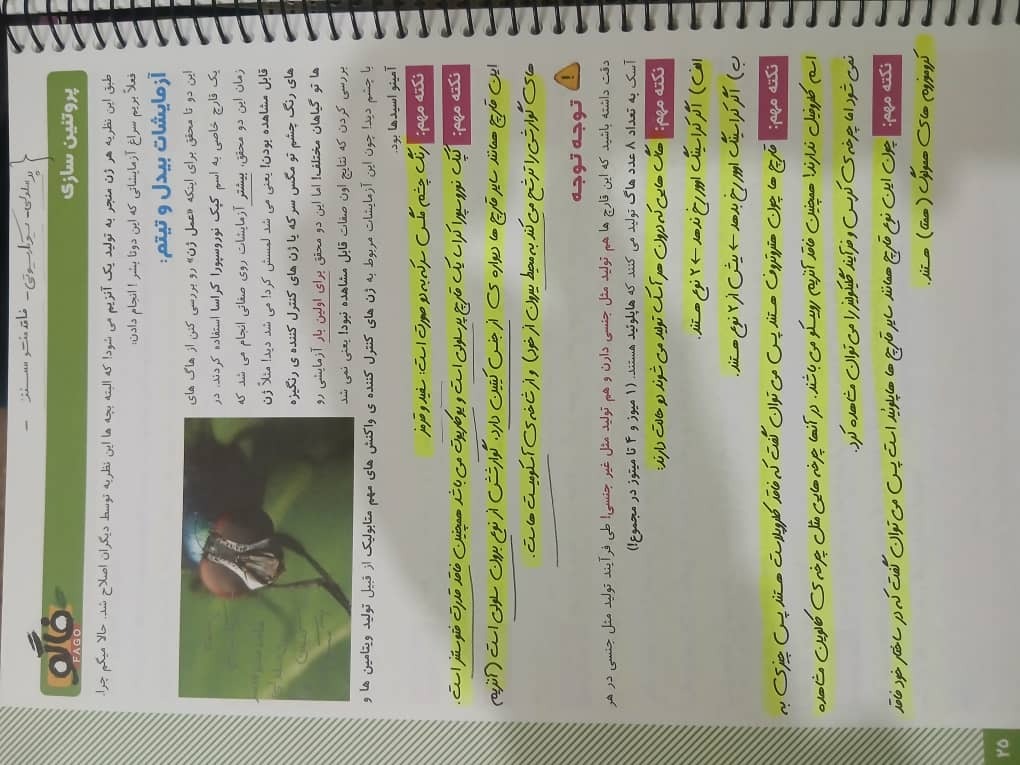 پروتئین سازی
فاگو
FAGO
طبق این نظریه هر ژن منجر به تولید یک آنزیم می شود! که البته بچه ها این نظریه توسط دیگران اصلاح شد. حالا میگم چرا.
فعلاً بریم سراغ آزمایشاتی که این دوتا بشر! انجام دادن:
آزمایشات بیدل و تیتم:
این دو تا محقق برای اینکه «عمل ژن» رو بررسی کنن از هاگ های
یک قارچ خاصی به اسم کپک نوروسپورا کراسا استفاده کردند. در
زمان این دو محقق، بیشتر آزمایشات روی صفاتی انجام می شد که
قابل مشاهده بودن! یعنی می شد لمسش کرد! می شد دیدا! مثلاً ژن
های رنگ چشم تو مگس سرکه یا ژن های کنترل کننده ی رنگیزه
ها تو گیاهان مختلف! اما این دو محقق برای اولین بار آزمایشی رو
بررسی کردن که نتایج اون صفات قابل مشاهده نبود! یعنی نمی شد
با چشم دید! چون این آزمایشات مربوط به ژن های کنترل کننده ی واکنش های مهم متابولیک از قبیل تولید ویتامین ها و
آمینو اسیدها بود.
نکته مهم: رنگ چشم مگس سرکه به دو صورت است. سفید و قرمز
نکته مهم: کپک نوروسپورا کراسا یک قارچ پرسلولی است و یوکاریوت می باشد همچنین فاقد قدرت فتوسنتز است.
این قارچ همانند سایر قارچ ها دیواره ی از جنس کیتین دارد. گوارشش از نوع برون سلولی است (آنزیم
های گوارشی را ترشح می کند به محیط بیرون از خود) و از شاخه ی آسکومیست هاست.
توجه توجه
دقت داشته باشید که این قارچ ها هم تولید مثل جنسی دارن و هم تولید مثل غیر جنسی! طی فرآیند تولید مثل جنسی در هر
آسک به تعداد ۸ عدد هاگ تولید می کنند که هاپلوئید هستند. (۱ میوز و ۴ تا میتوز در مجموع!)
نکته مهم: هاگ هایی که درون هر آسک تولید می شوند دو حالت دارند:
الف) اگر کراسینگ اوور رخ ندهد ← ۲ نوع هستند.
ب) اگر کراسینگ اوور رخ بدهد ← بیش از ۲ نوع هستند.
نکته مهم: قارچ ها چون هتروتروف هستند پس می توان گفت که فاقد کلروپلاست هستند پس چیزی به
اسم کلروفیل ندارند! همچنین فاقد آنزیم روبیسکو می باشند. در آنها چرخه هایی مثل چرخه ی کالوین مشاهده
نمی شود اما چرخه ی کربس و فرآیند گلیکولیز را می توان مشاهده کرد.
نکته مهم: چون این نوع قارچ همانند سایر قارچ ها هاپلوئید است پس می توان گفت که در ساختار خود فاقد
کروموزوم های همولوگ (همتا) هستند.
۲۵